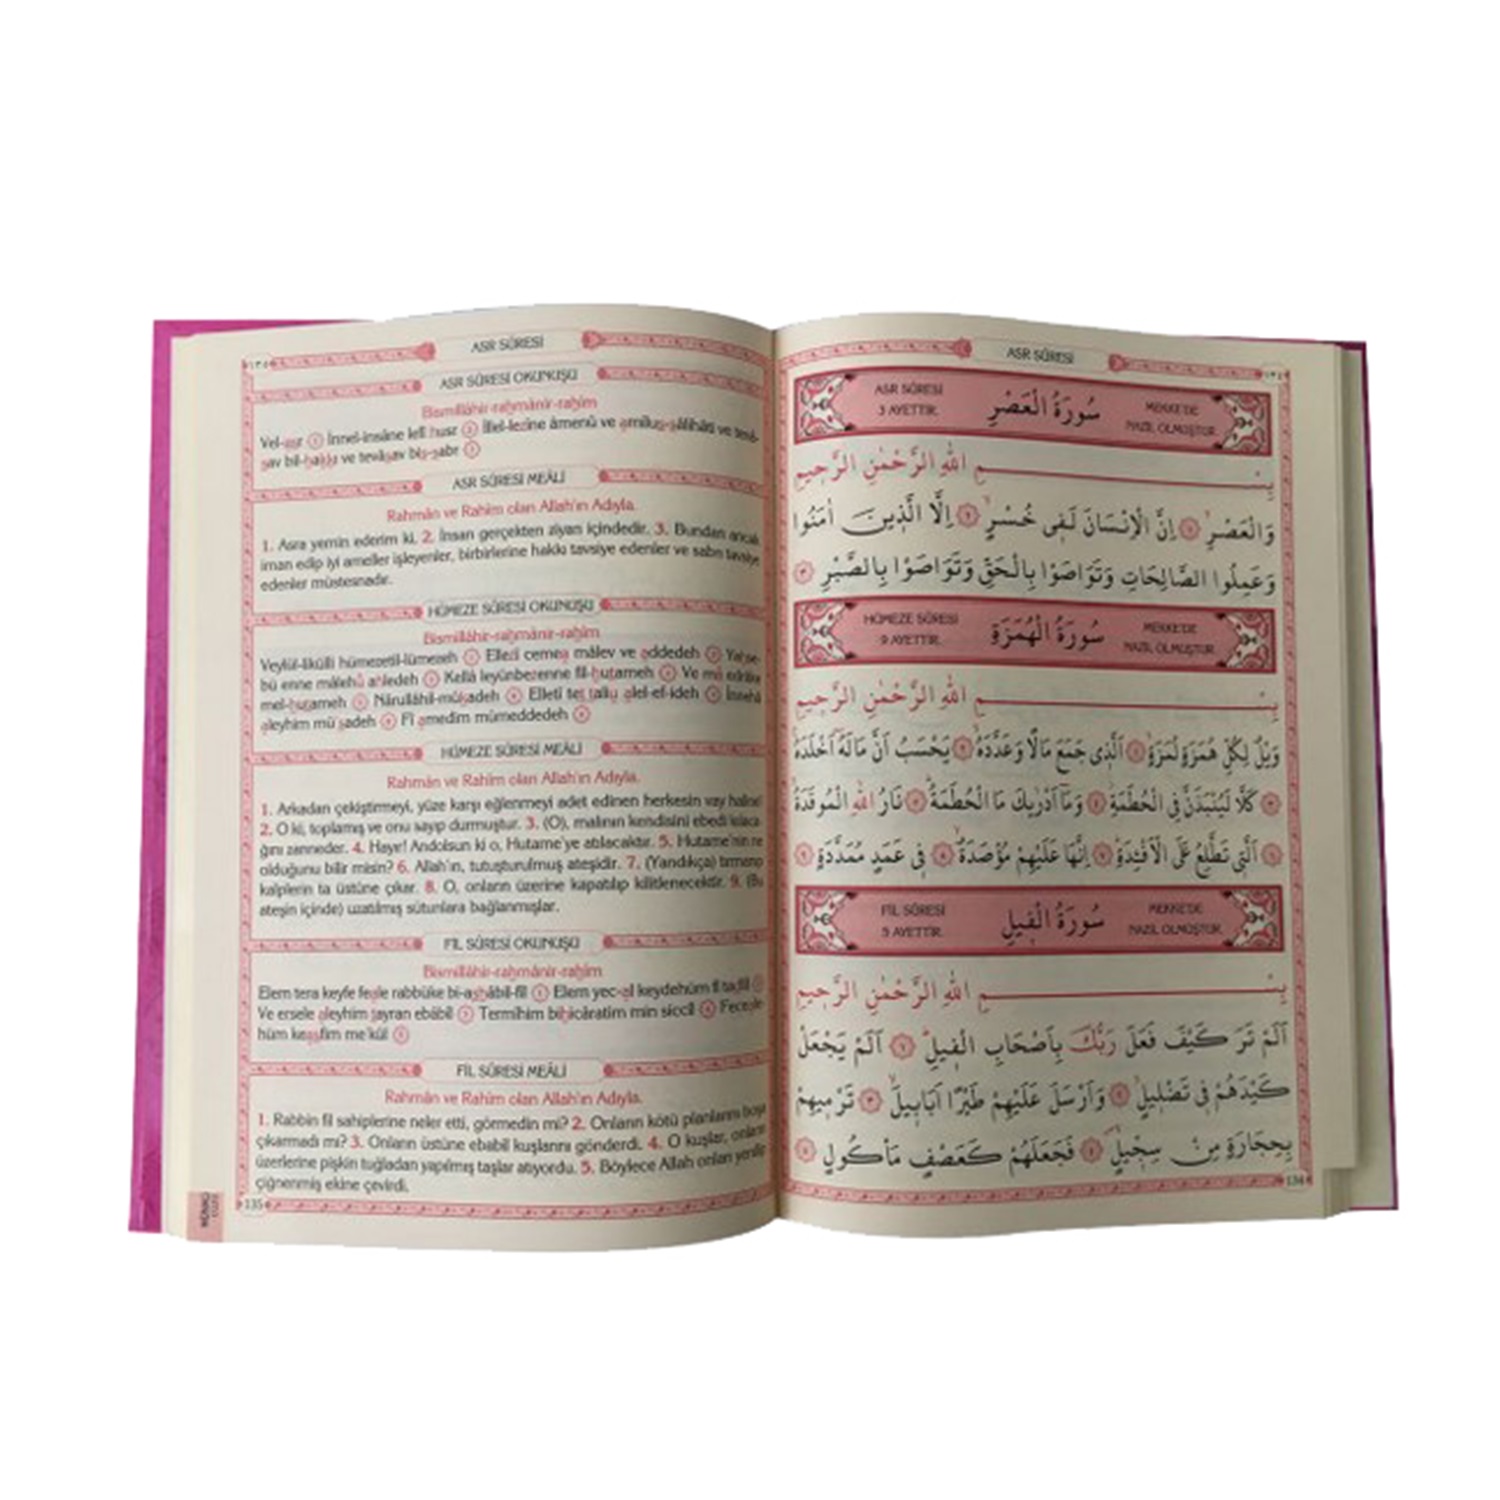 ASR SÛRESİ
ASR SÛRESİ OKUNUŞU
Bismillâhir-rahmânir-rahîm
Vel-asr ① İnnel-insâne lefî husr ② İllel-lezîne âmenû ve amilus-sâlihâti ve tevâ-
sav bil-hakkı ve tevâsav bis-sabr ③
ASR SÛRESİ MEÂLİ
Rahmân ve Rahîm olan Allah'ın Adıyla.
1. Asra yemin ederim ki, 2. İnsan gerçekten ziyan içindedir. 3. Bundan ancak
iman edip iyi ameller işleyenler, birbirlerine hakkı tavsiye edenler ve sabrı tavsiye
edenler müstesnadır.
HÜMEZE SÛRESİ OKUNUŞU
Bismillâhir-rahmânir-rahîm
Veylül-likülli hümezetil-lümezeh ① Ellezî cemea mâlev ve addedeh ② Yahse-
bü enne mâlehû ahledeh ③ Kellâ leyünbezenne fil-hutameh ④ Ve mâ edrâke
mel-hutameh ⑤ Nârullâhil-mûkadeh ⑥ Elletî tettaliu alel-ef'ideh ⑦ İnnehâ
aleyhim mü'sadeh ⑧ Fî amedim mümeddedeh ⑨
HÜMEZE SÛRESİ MEÂLİ
Rahmân ve Rahîm olan Allah'ın Adıyla.
1. Arkadan çekiştirmeyi, yüze karşı eğlenmeyi adet edinen herkesin vay haline!
2. O ki, toplamış ve onu sayıp durmuştur. 3. (O), malının kendisini ebedi kılaca-
ğını zanneder. 4. Hayır! Andolsun ki o, Hutame'ye atılacaktır. 5. Hutame'nin ne
olduğunu bilir misin? 6. Allah'ın, tutuşturulmuş ateşidir. 7. (Yandıkça) tırmanıp
kalplerin ta üstüne çıkar. 8. O, onların üzerine kapatılıp kilitlenecektir. 9. (Bu
ateşin içinde) uzatılmış sütunlara bağlanmışlar.
FİL SÛRESİ OKUNUŞU
Bismillâhir-rahmânir-rahîm
Elem tera keyfe feale rabbüke bi-ashâbil-fîl ① Elem yec-al keydehüm fî tadlîl ②
Ve ersele aleyhim tayran ebâbîl ③ Termîhim bihicâratim min siccîl ④ Feceale
hüm keasfim me'kûl ⑤
FİL SÛRESİ MEÂLİ
Rahmân ve Rahîm olan Allah'ın Adıyla.
1. Rabbin fil sahiplerine neler etti, görmedin mi? 2. Onların kötü planlarını boşa
çıkarmadı mı? 3. Onların üstüne ebabil kuşlarını gönderdi. 4. O kuşlar, onların
üzerlerine pişkin tuğladan yapılmış taşlar atıyordu. 5. Böylece Allah onları yenilip
çiğnenmiş ekine çevirdi.
135
ASR SÛRESİ
ASR SÛRESİ
3 AYETTİR.
سُورَةُ الْعَصْرِ
MEKKE'DE
NAZİL OLMUŞTUR.
بِسْمِ اللّٰهِ الرَّحْمٰنِ الرَّحِيمِ
وَالْعَصْرِۙ ١ اِنَّ الْاِنْسَانَ لَفِى خُسْرٍۙ ٢ اِلَّا الَّذِينَ اٰمَنُوا
وَعَمِلُوا الصَّالِحَاتِ وَتَوَاصَوْا بِالْحَقِّ وَتَوَاصَوْا بِالصَّبْرِ ٣
HÜMEZE SÛRESİ
9 AYETTİR.
سُورَةُ الْهُمَزَةِ
MEKKE'DE
NAZİL OLMUŞTUR.
بِسْمِ اللّٰهِ الرَّحْمٰنِ الرَّحِيمِ
وَيْلٌ لِكُلِّ هُمَزَةٍ لُمَزَةٍۙ ١ اَلَّذِى جَمَعَ مَالًا وَعَدَّدَهُۙ ٢ يَحْسَبُ اَنَّ مَالَهُٓ اَخْلَدَهُۚ
٣ كَلَّا لَيُنْبَذَنَّ فِى الْحُطَمَةِۘ ٤ وَمَٓا اَدْرٰيكَ مَا الْحُطَمَةُۜ ٥ نَارُ اللّٰهِ الْمُوقَدَةُۙ
٦ اَلَّتِى تَطَّلِعُ عَلَى الْاَفْئِدَةِۜ ٧ اِنَّهَا عَلَيْهِمْ مُؤْصَدَةٌۙ ٨ فِى عَمَدٍ مُمَدَّدَةٍ ٩
FİL SÛRESİ
5 AYETTİR.
سُورَةُ الْفِيلِ
MEKKE'DE
NAZİL OLMUŞTUR.
بِسْمِ اللّٰهِ الرَّحْمٰنِ الرَّحِيمِ
اَلَمْ تَرَ كَيْفَ فَعَلَ رَبُّكَ بِاَصْحَابِ الْفِيلِۜ ١ اَلَمْ يَجْعَلْ
كَيْدَهُمْ فِى تَضْلِيلٍۙ ٢ وَاَرْسَلَ عَلَيْهِمْ طَيْرًا اَبَابِيلَۙ ٣ تَرْمِيهِمْ
بِحِجَارَةٍ مِنْ سِجِّيلٍۙ ٤ فَجَعَلَهُمْ كَعَصْفٍ مَأْكُولٍ ٥
134